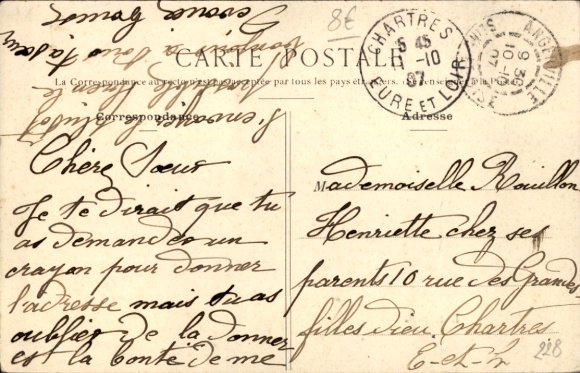 8€
CARTE POSTALE
La Correspondance au recto n'est pas acceptée par tous les pays étrangers. (Se renseigner à la Poste)
Correspondance
Adresse
CHARTRES
5 45
11 -10
07
EURE ET LOIR
Chère Sœur
Je te dirait que tu
as demander un
crayon pour donner
l'adresse mais tu as
oublier de la donner
est la bonté de me
l'envoyer
Mademoiselle Rouillon
Henriette chez ses
parents 10 rue des Grandes
filles dieu Chartres
E-et-L
228